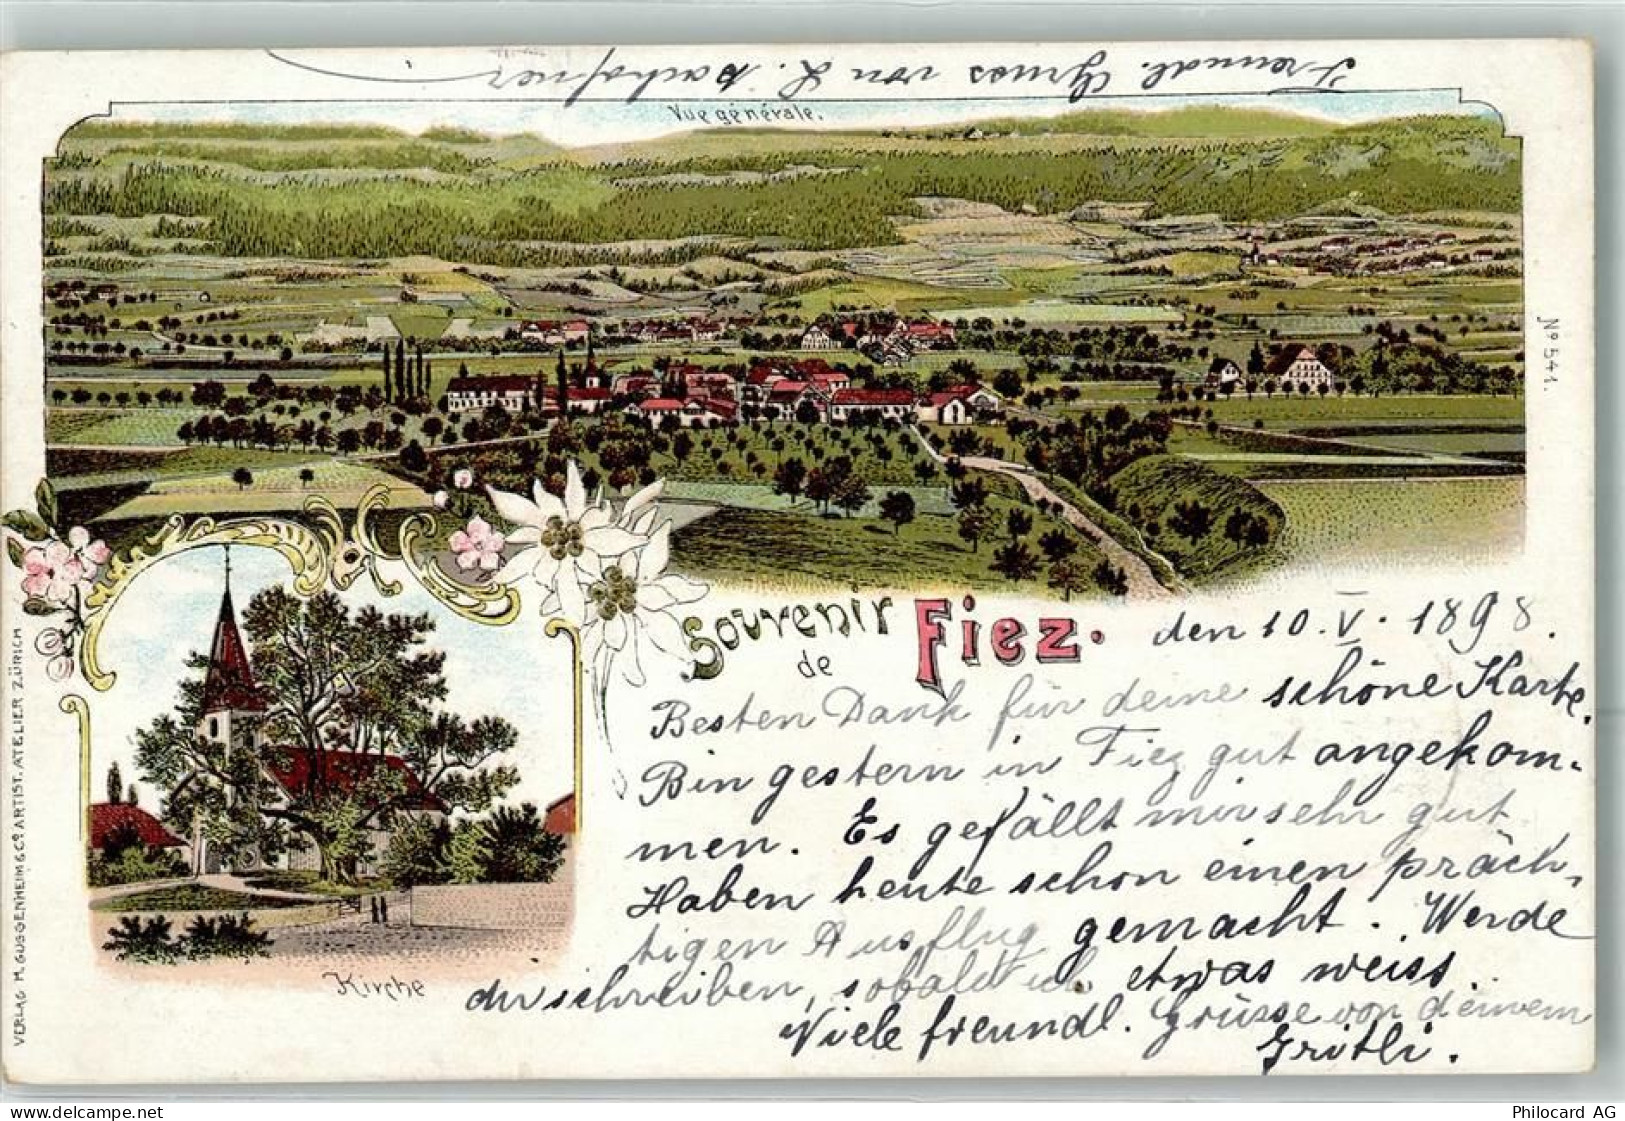 Freundl. Gruss von L.
Vue générale.
No 541.
Souvenir
de
Fiez.
den 10. V. 1898.
Besten Dank für deine schöne Karte.
Bin gestern in Fiez gut angekom-
men. Es gefällt mir sehr gut.
Haben heute schon einen präch-
tigen Ausflug gemacht. Werde
dir schreiben, sobald ich etwas weiss.
Viele freundl. Grüsse von deinem
Gritli.
Kirche
VERLAG M. GUGGENHEIM & Co ARTIST. ATELIER ZÜRICH
www.delcampe.net
Philocard AG